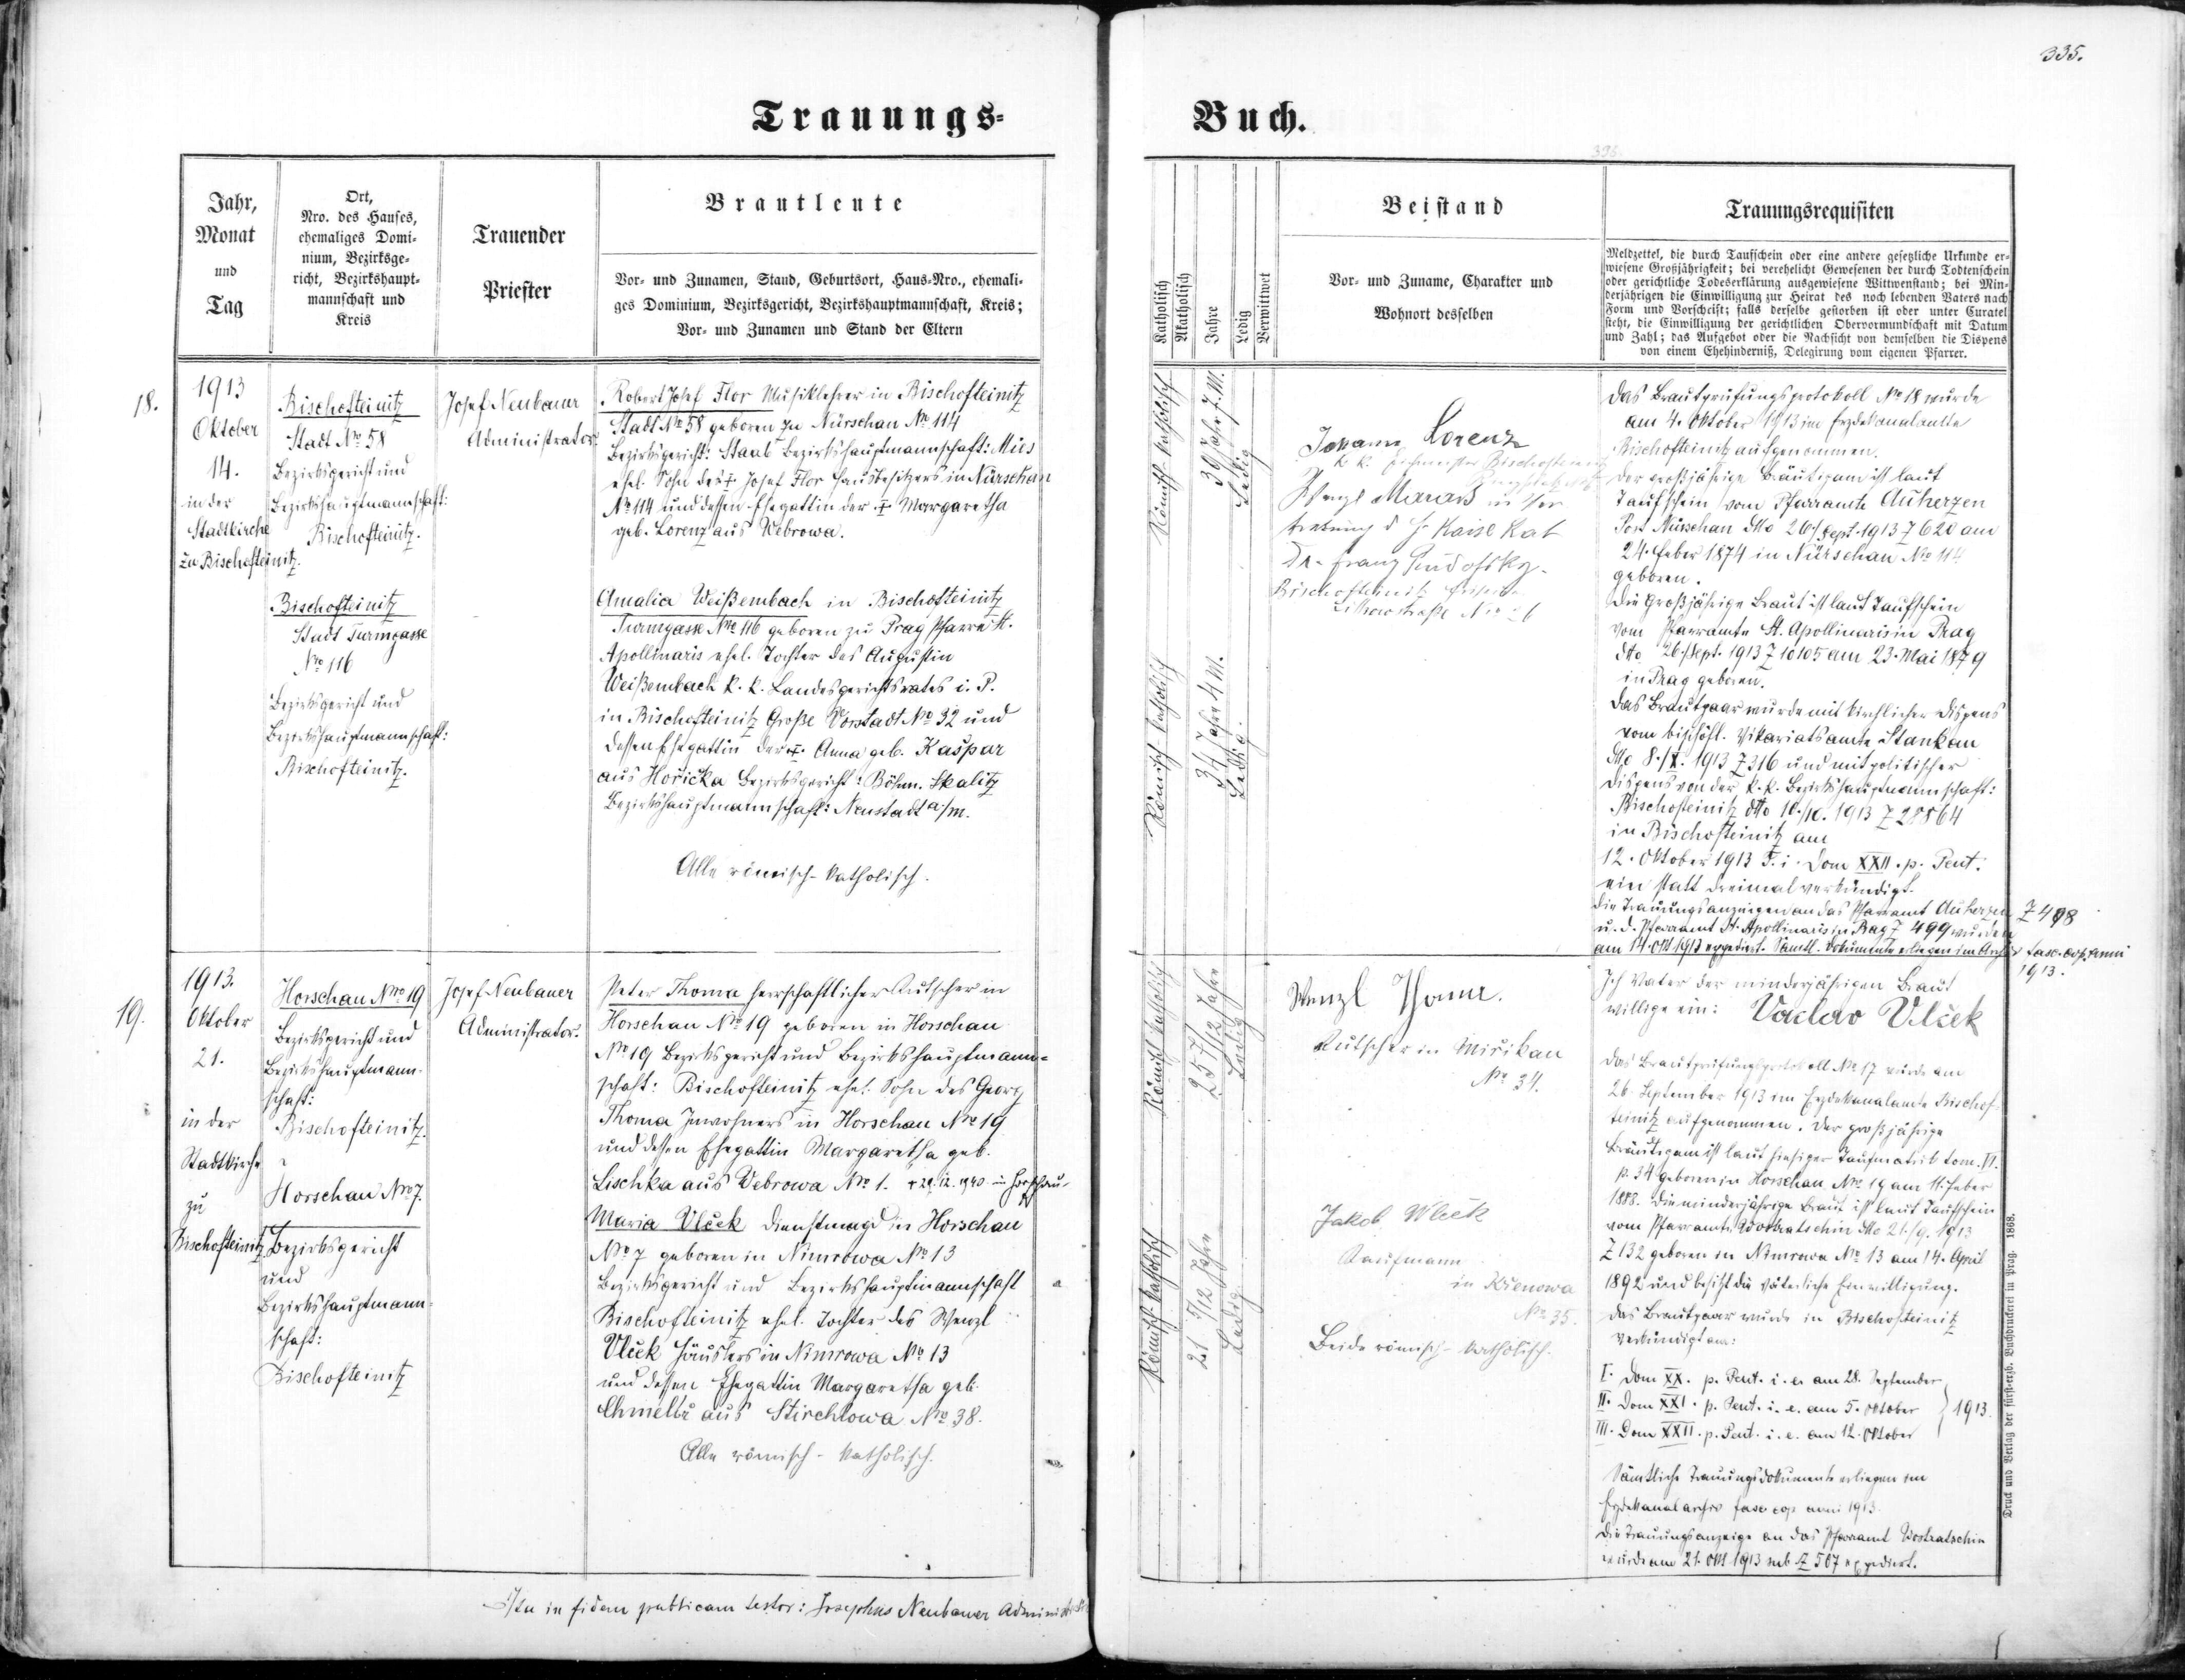 335.
Trauungs-
Buch.
Jahr,
Monat
und
Tag
Ort,
Nro. des Hauses,
ehemaliges Domi-
nium, Bezirksge-
richt, Bezirkshaupt-
mannschaft und
Kreis
Trauender
Priester
Brautleute
Vor- und Zunamen, Stand, Geburtsort, Haus-Nro., ehemali-
ges Dominium, Bezirksgericht, Bezirkshauptmannschaft, Kreis;
Vor- und Zunamen und Stand der Eltern
Katholisch
Akatholisch
Jahre
Ledig
Verwittwet
Beistand
Vor- und Zuname, Charakter und
Wohnort desselben
Trauungsrequisiten
Meldzettel, die durch Taufschein oder eine andere gesetzliche Urkunde er-
wiesene Großjährigkeit; bei verehelicht Gewesenen der durch Todtenschein
oder gerichtliche Todeserklärung ausgewiesene Wittwenstand; bei Min-
derjährigen die Einwilligung zur Heirat des noch lebenden Vaters nach
Form und Vorschrift; falls derselbe gestorben ist oder unter Curatel
steht, die Einwilligung der gerichtlichen Obervormundschaft mit Datum
und Zahl; das Aufgebot oder die Nachsicht von demselben die Dispens
von einem Ehehinderniß, Delegirung vom eigenen Pfarrer.
18.
1913
Oktober
14.
in der
Stadtkirche
zu Bischofteinitz.
Bischofteinitz
Stadt No 58
Bezirksgericht und
Bezirkshauptmannschaft:
Bischofteinitz.
Bischofteinitz
Stadt Turmgasse
No 116
Bezirksgericht und
Bezirkshauptmannschaft:
Bischofteinitz.
Josef Neubauer
Administrator.
Robert Josef Flor Musiklehrer in Bischofteinitz
Stadt No 58 geboren zu Nürschan No 114
Bezirksgericht: Staab Bezirkshauptmannschaft: Mies
ehel. Sohn des † Josef Flor Hausbesitzers in Nürschan
No 114 und dessen Ehegattin der † Margaretha
geb. Lorenz aus Webrowa.
Amalia Weißembach in Bischofteinitz
Turmgasse No 116 geboren zu Prag Pfarre St.
Apollinaris ehel. Tochter des Augustin
Weißembach k. k. Landesgerichtsrates i. P.
in Bischofteinitz Große Vorstadt No 32 und
dessen Ehegattin der † Anna geb. Kašpar
aus Hořička Bezirksgericht: Böhm. Skalitz
Bezirkshauptmannschaft: Neustadt a/m.
Alle römisch-katholisch.
Römisch-katholisch
39 Jahre 7. M.
Ledig
Römisch katholisch
34 Jahre 4 M.
Ledig.
Johann Lorenz
k. k. Bischofteinitz
Wenzl in Ver
tretung d H Kaise Rat
Dr. Franz
Bischofteinitz
No 26
Das Brautprüfungsprotokoll No 18 wurde
am 4. Oktober 1913 im Erzdekanalamte
Bischofteinitz aufgenommen.
Der großjährige Bräutigam ist laut
Taufschein vom Pfarramte Auherzen
Post Nürschan dtto 26/Sept. 1913 Z 620 am
24. Feber 1874 in Nürschan No 114
geboren.
Die Großjährige Braut ist laut Taufschein
vom Pfarramte St. Apollinaris in Prag
dtto 26/Sept. 1913 Z 10105 am 23. Mai 1879
in Prag geboren.
Das Brautpaar wurde mit kirchlicher Dispens
vom bischöfl. Vikariatsamte Stankau
dtto 8./X. 1913 Z 316 und mit politischer
Dispens von der k. k. Bezirkshauptmannschaft:
Bischofteinitz dtto 10./10. 1913 Z 28864
in Bischofteinitz am
12. Oktober 1913 d. i. Dom XXII. p. Pent.
ein statt dreimal verkündigt.
Die Trauungsanzeigen an das Pfarramt Auherzen Z 498
u. d. Pfarramt St. Apollinaris in Prag Z 499 wurden
am 14. Okt 1913 expediert. Sämtl. Dokumente erliegen im Archiv fasc. cop. anni
1913.
19.
1913.
Oktober
21.
in der
Stadtkirche
zu
Bischofteinitz
Horschau No 19
Bezirksgericht und
Bezirkshauptmann-
schaft:
Bischofteinitz.
Horschau No 7.
Bezirksgericht
und
Bezirkshauptmann-
schaft:
Bischofteinitz
Josef Neubauer
Administrator.
Peter Thoma herrschaftlicher Kutscher in
Horschau No 19 geboren in Horschau
No 19 Bezirksgericht und Bezirkshauptmann-
schaft: Bischofteinitz ehel. Sohn des Georg
Thoma Inwohners in Horschau No 19
und dessen Ehegattin Margaretha geb.
Lischka aus Webrowa No 1. † 29. 12. 1940 in Horschau.
Maria Vlček Dienstmagd in Horschau
No 7 geboren in Nimrowa No 13
Bezirksgericht und Bezirkshauptmannschaft
Bischofteinitz ehel. Tochter des Wenzl
Vlček Häuslers in Nimrowa No 13
und dessen Ehegattin Margaretha geb.
aus Stirchlowa No 38.
Alle römisch-katholisch.
Römisch katholisch
25 7/12 Jahre
Ledig
Römisch katholisch
21 5/12 Jahre
Ledig
Wenzl Thoma.
Kutscher in Mirikau
No 34.
Jakob Wlček
Kaufmann
in Křenowa
No 35.
Beide römisch-katholisch.
Ich Vater der minderjährigen Braut
willige ein: Vaclav Vlček
Das Brautprüfungsprotokoll No 17 wurde am
26. September 1913 im Erzdekanalamte Bischof-
teinitz aufgenommen. Der großjährige
Bräutigam ist laut hiesiger Taufmatrik tom. VI.
p. 34 geboren in Horschau No 19 am 11. Feber
1888. Die minderjährige Braut ist laut Taufschein
vom Pfarramte Wostratschin dtto 21./9. 1913
Z 132 geboren in Nimrowa No 13 am 14. April
1892 und besitzt die väterliche Einwilligung.
Das Brautpaar wurde in Bischofteinitz
verkündigt am:
I. Dom XX. p. Pent. i. e. am 28. September
II. Dom XXI. p. Pent. i. e. am 5. Oktober } 1913.
III. Dom XXII. p. Pent. i. e. am 12. Oktober
Sämtliche Trauungsdokumente erliegen im
Erzdekanalarchiv fasc cop anni 1913.
Die Trauungsanzeige an das Pfarramt Wostratschin
wurde am 21. Okt 1913 sub Z 507 expediert.
Druck und Verlag der fürst-erzb. Buchdruckerei in Prag. 1868.
Ita in fidem publicam testor: Josephus Neubauer Administr